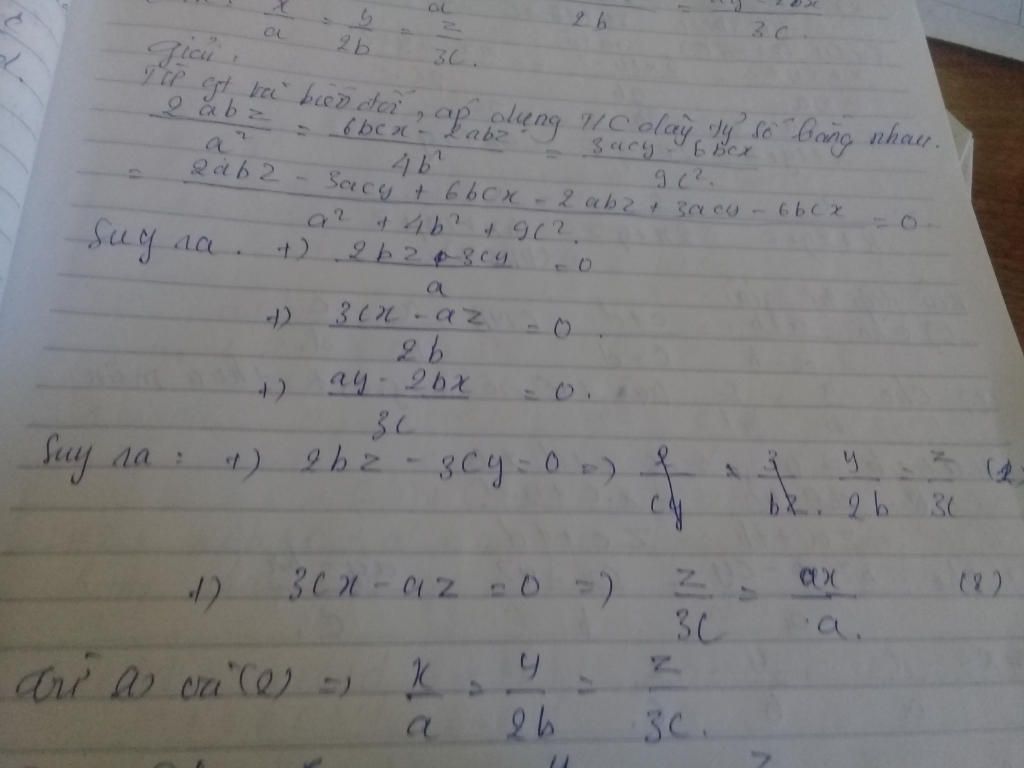 x/a = y/2b = z/3c.
a 2b = ay - 2bx / 3c.
Giải.
Từ gt và biến đổi, áp dụng T/C dãy tỷ số bằng nhau.
2abz / a² = 6bcx - 2abz / 4b² = 3acy - 6bcx / 9c².
= 2abz - 3acy + 6bcx - 2abz + 3acy - 6bcx / a² + 4b² + 9c². = 0.
Suy ra. +) 2bz - 3cy / a = 0
+) 3cx - az / 2b = 0.
+) ay - 2bx / 3c = 0.
Suy ra: +) 2bz - 3cy = 0 => y/2b = z/3c (1)
+) 3cx - az = 0 => z/3c = x/a. (2)
Từ (1) và (2) => x/a = y/2b = z/3c.